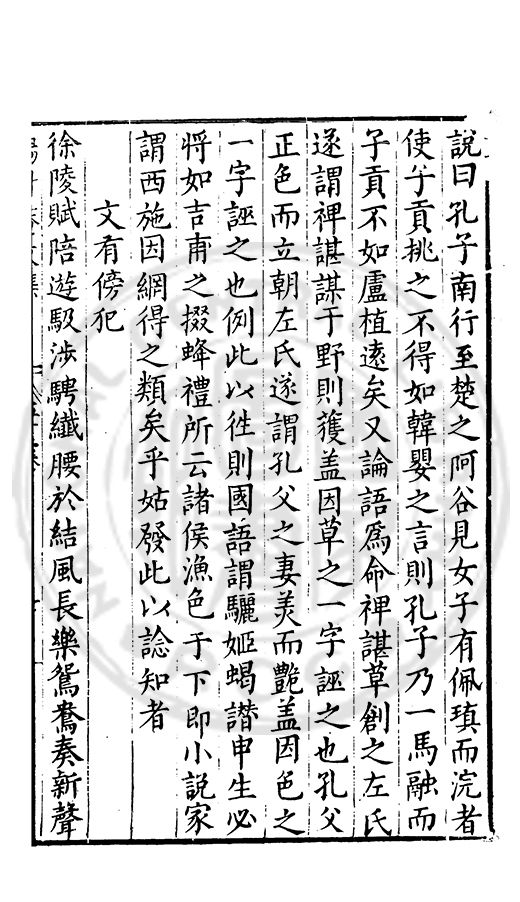 說曰孔子南行至楚之阿谷見女子有佩瑱而浣者
使子貢挑之不得如韓嬰之言則孔子乃一馬融而
子貢不如盧植遠矣又論語爲命裨諶草創之左氏
遂謂裨諶謀于野則獲盖因草之一字誣之也孔父
正色而立朝左氏遂謂孔父之妻美而艷盖因色之
一字誣之也例此以徃則國語謂驪姬蝎譖申生必
將如吉甫之掇蜂禮所云諸侯漁色于下即小說家
謂西施因網得之類矣乎姑發此以諗知者
文有傍犯
徐陵賦陪遊馺涉騁纖腰於結風長樂鴛鴦奏新聲